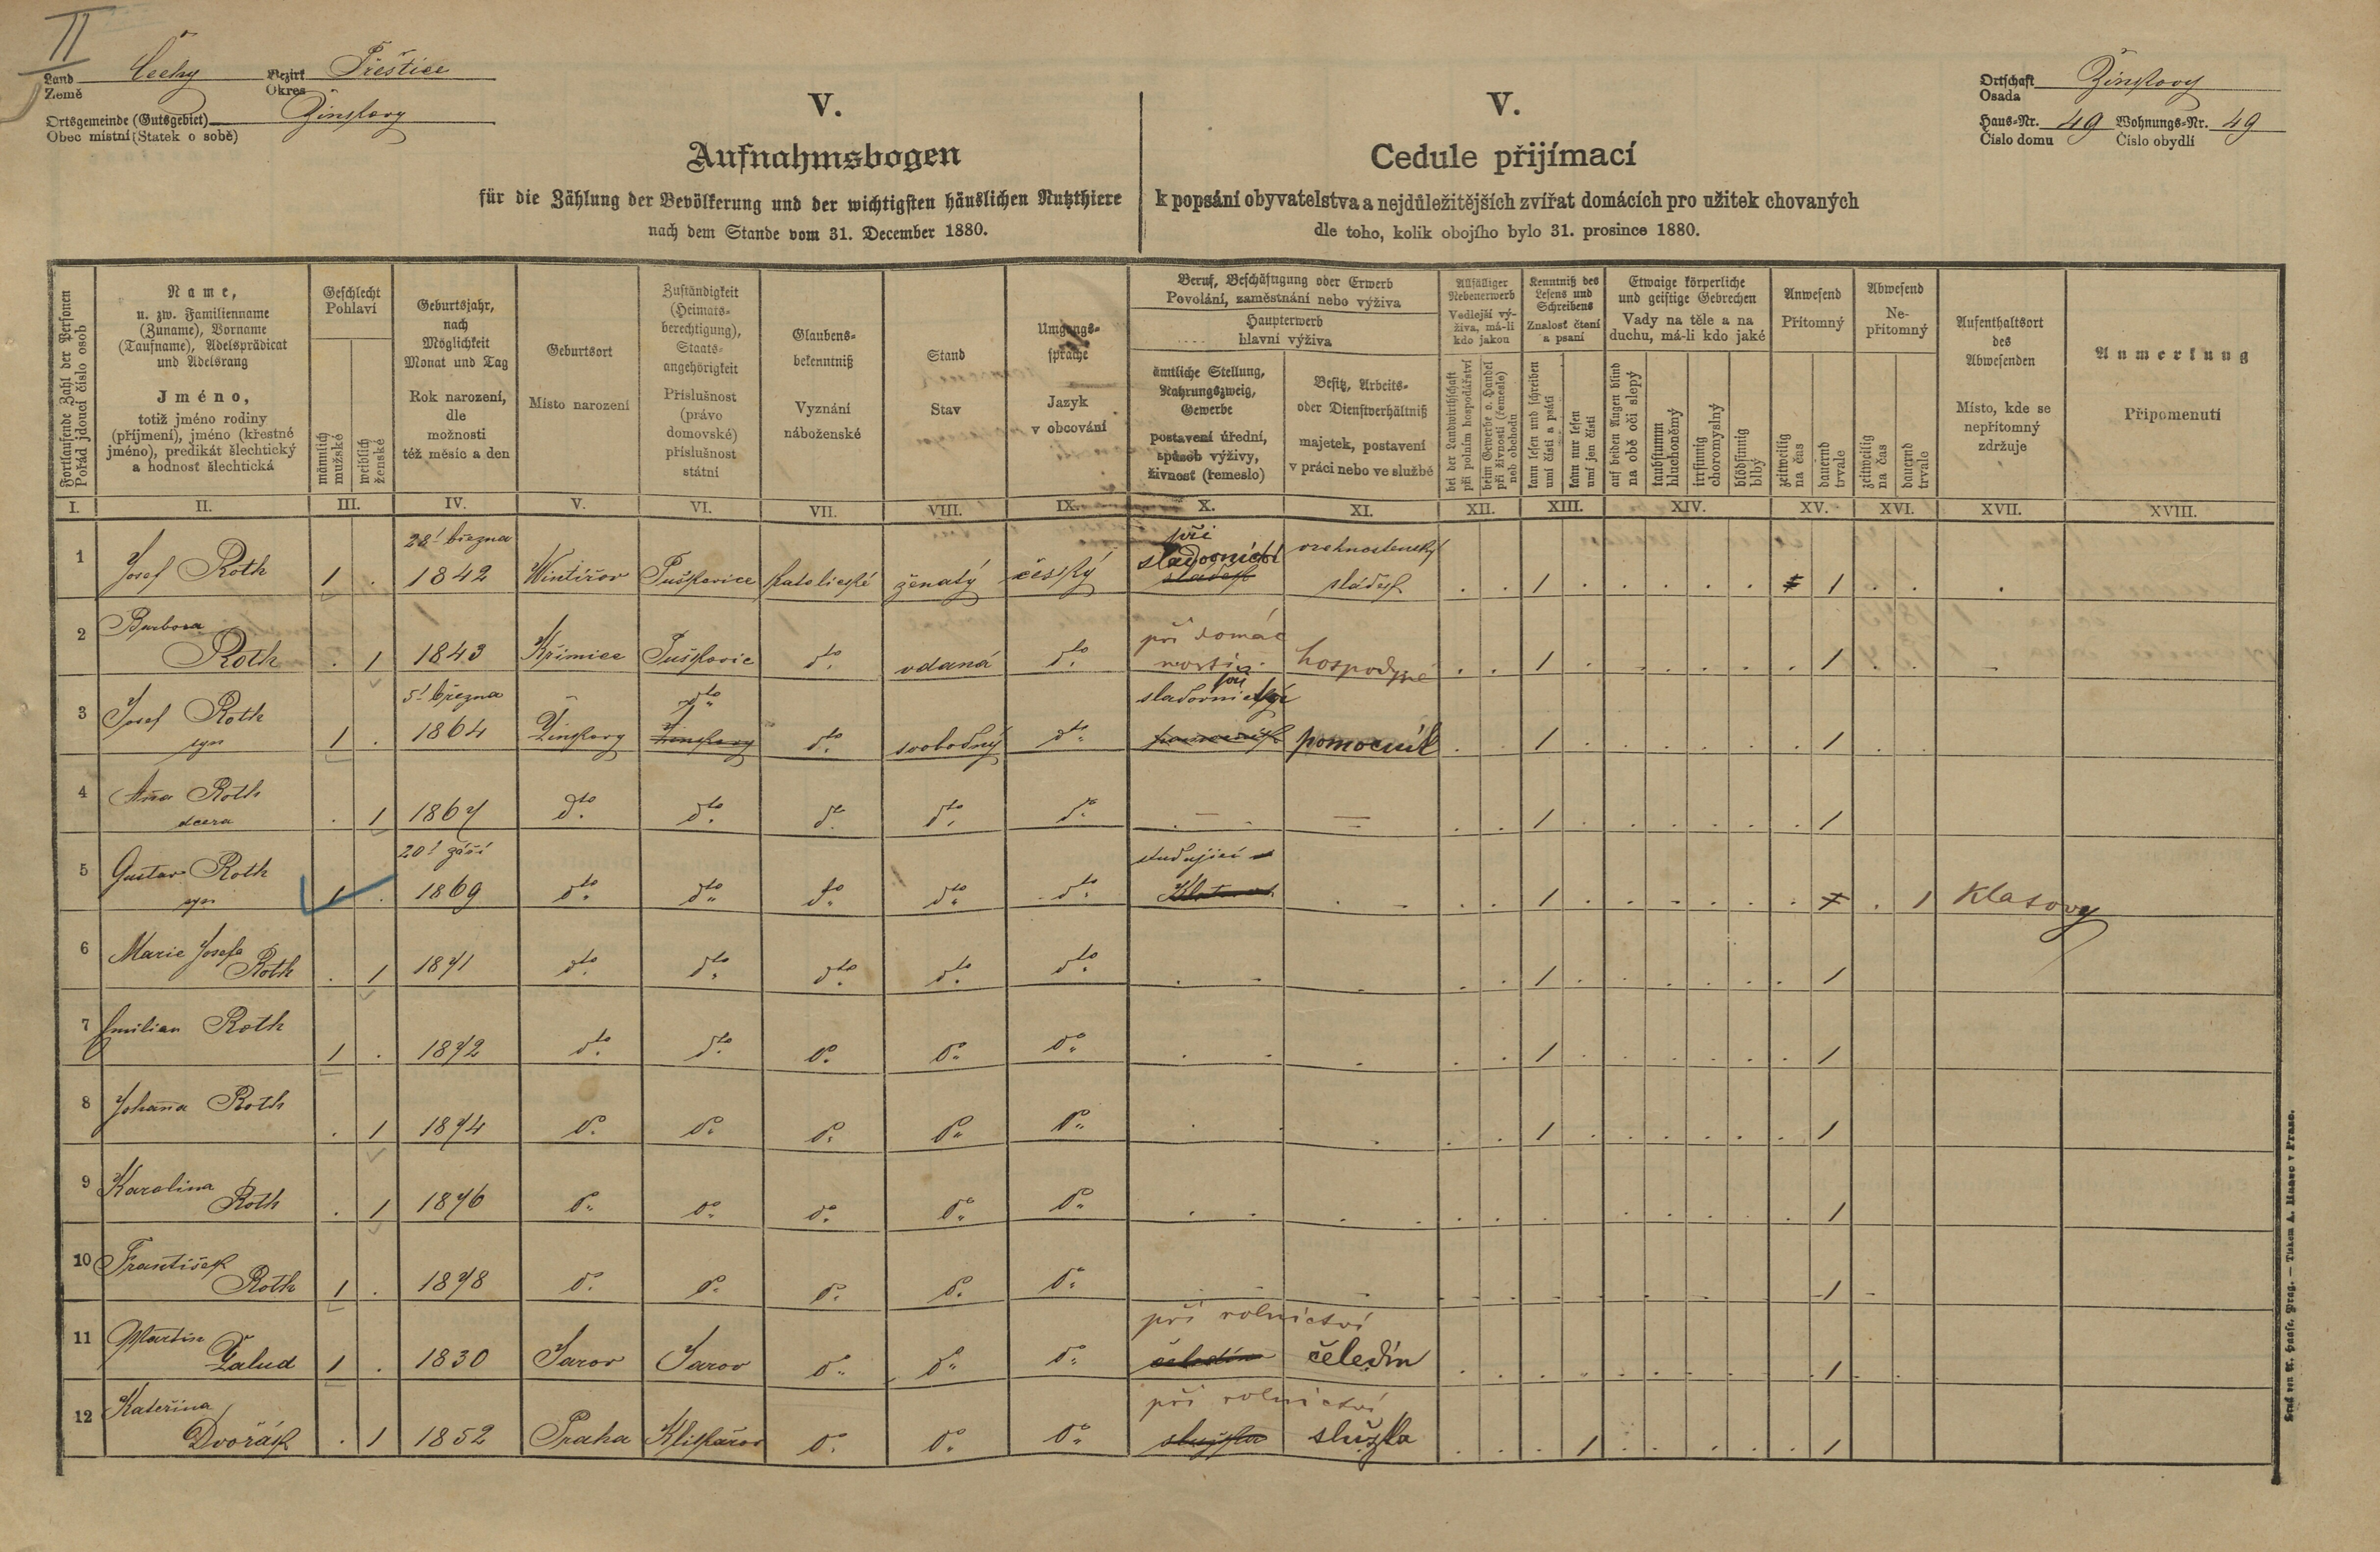 II
Land Čechy Bezirk Přeštice
Země Okres
Ortsgemeinde (Gutsgebiet) Žinkovy
Obec místní (Statek o sobě)
V.
Aufnahmsbogen
für die Zählung der Bevölkerung und der wichtigsten häuslichen Nutzthiere
nach dem Stande vom 31. December 1880.
V.
Cedule přijímací
k popsání obyvatelstva a nejdůležitějších zvířat domácích pro užitek chovaných
dle toho, kolik obojího bylo 31. prosince 1880.
Ortschaft Žinkovy
Osada
Haus-Nr. 49 Wohnungs-Nr. 49
Číslo domu Číslo obydlí
Fortlaufende Zahl der Personen
Pořád jdoucí číslo osob
Name,
u. zw. Familienname
(Zuname), Vorname
(Taufname), Adelsprädicat
und Adelsrang
Jméno,
totiž jméno rodiny
(příjmení), jméno (křestné
jméno), predikát šlechtický
a hodnost šlechtická
Geschlecht
Pohlaví
männlich
mužské
weiblich
ženské
Geburtsjahr,
nach
Möglichkeit
Monat und Tag
Rok narození,
dle
možnosti
též měsíc a den
Geburtsort
Místo narození
Zuständigkeit
(Heimats-
berechtigung),
Staats-
angehörigkeit
Příslušnost
(právo
domovské)
příslušnost
státní
Glaubens-
bekenntniß
Vyznání
náboženské
Stand
Stav
Umgangs-
sprache
Jazyk
v obcování
Beruf, Beschäftigung oder Erwerb
Povolání, zaměstnání nebo výživa
Haupterwerb
hlavní výživa
ämtliche Stellung,
Nahrungszweig,
Gewerbe
postavení úřední,
spůsob výživy,
živnost (řemeslo)
Besitz, Arbeits-
oder Dienstverhältniß
majetek, postavení
v práci nebo ve službě
Allfälliger
Nebenerwerb
Vedlejší vý-
živa, má-li
kdo jakou
bei der Landwirthschaft
při polním hospodářství
beim Gewerbe o. Handel
při živnosti (řemesle)
neb obchodu
Kenntniß des
Lesens und
Schreibens
Znalost čtení
a psaní
kann lesen und schreiben
umí čísti a psáti
kann nur lesen
umí jen čísti
Etwaige körperliche
und geistige Gebrechen
Vady na těle a na
duchu, má-li kdo jaké
auf beiden Augen blind
na obě oči slepý
taubstumm
hluchoněmý
irrsinnig
choromyslný
blödsinnig
blbý
Anwesend
Přítomný
zeitweilig
na čas
dauernd
trvale
Abwesend
Ne-
přítomný
zeitweilig
na čas
dauernd
trvale
Aufenthaltsort
des
Abwesenden
Místo, kde se
nepřítomný
zdržuje
Anmerkung
Připomenutí
I. II. III. IV. V. VI. VII. VIII. IX. X. XI. XII. XIII. XIV. XV. XVI. XVII. XVIII.
28! března při vrchnostenský
1 Josef Roth 1 . 1842 Wintířov Puškovice katolické ženatý český sladovnictví sládek sládek . . 1 . . . . . 1 . . .
2 Barbora při domác
Roth . 1 1843 Křimice Puškovic dto vdaná dto nosti hospodyně . . 1 . . . . . . 1 . .
5! března dto při
3 Josef Roth sladovnictví
syn 1 . 1864 Žinkovy Žinkovy dto svobodný dto pomocník pomocník . . 1 . . . . . . 1 . .
4 Anna Roth
dcera . 1 1867 dto dto dto dto dto . . 1 . . . . . . 1
20! září studující
5 Gustav Roth
syn 1 . 1869 dto dto dto dto dto . . 1 . . . . . . . 1 Klatovy
6 Marie Josefa
Roth . 1 1871 dto dto dto dto dto . . 1 . . . . . . 1
7 Emilian Roth
1 . 1872 dto dto do do do . . 1 . . . . . . 1
8 Johanna Roth
. 1 1874 do do do do do . . 1 . . . . . . 1
9 Karolina
Roth . 1 1876 do do do do do . . . . . . . . 1
10 František
Roth 1 . 1878 do do do do do 1
11 Martin při rolnictví
Žalud 1 . 1830 Žarov Žarov do do do čeledín čeledín 1
12 Kateřina při rolnictví
Dvořák . 1 1852 Praha do do do služka služka . . . 1 . . . . . 1
Druck von A. Haase, Prag. — Tiskem A. Haase v Praze.